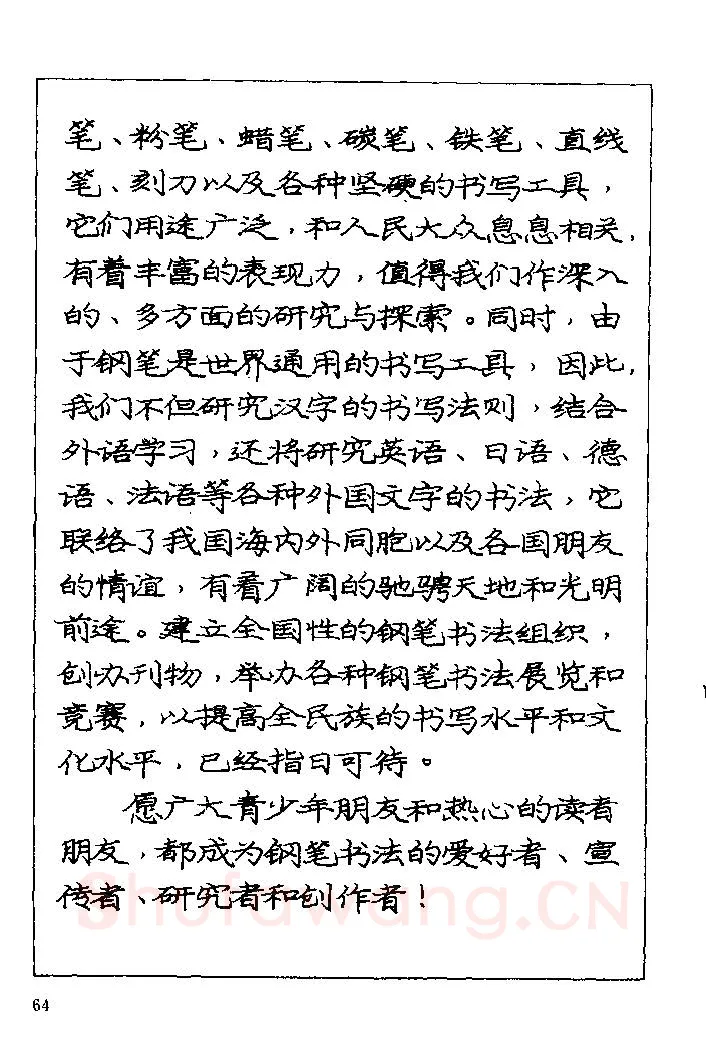 笔、粉笔、蜡笔、碳笔、铁笔、直线
笔、刻刀以及各种坚硬的书写工具，
它们用途广泛，和人民大众息息相关，
有着丰富的表现力，值得我们作深入
的、多方面的研究与探索。同时，由
于钢笔是世界通用的书写工具，因此，
我们不但研究汉字的书写法则，结合
外语学习，还将研究英语、日语、德
语、法语等各种外国文字的书法，它
联络了我国海内外同胞以及各国朋友
的情谊，有着广阔的驰骋天地和光明
前途。建立全国性的钢笔书法组织，
创办刊物，举办各种钢笔书法展览和
竞赛，以提高全民族的书写水平和文
化水平，已经指日可待。
愿广大青少年朋友和热心的读者
朋友，都成为钢笔书法的爱好者、宣
传者、研究者和创作者！
Shufawang.CN
64